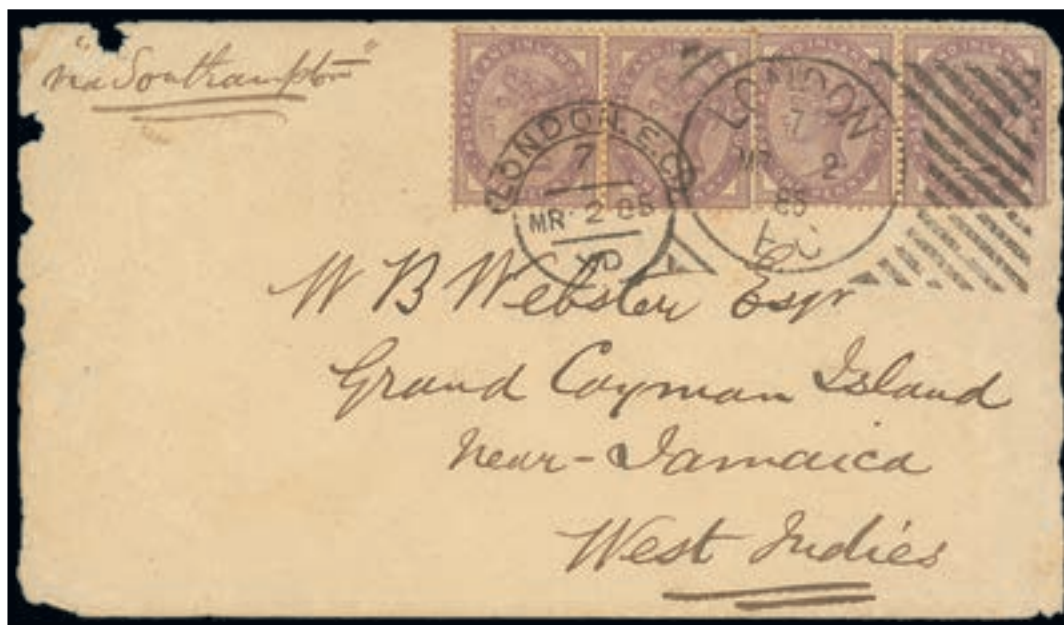 "via Southampton"
POSTAGE AND INLAND
LONDON. E.C.
7
MR 2 85
CK
LONDON
7
MR 2
85
W B Webster Esqr
Grand Cayman Island
near-Jamaica
West Indies